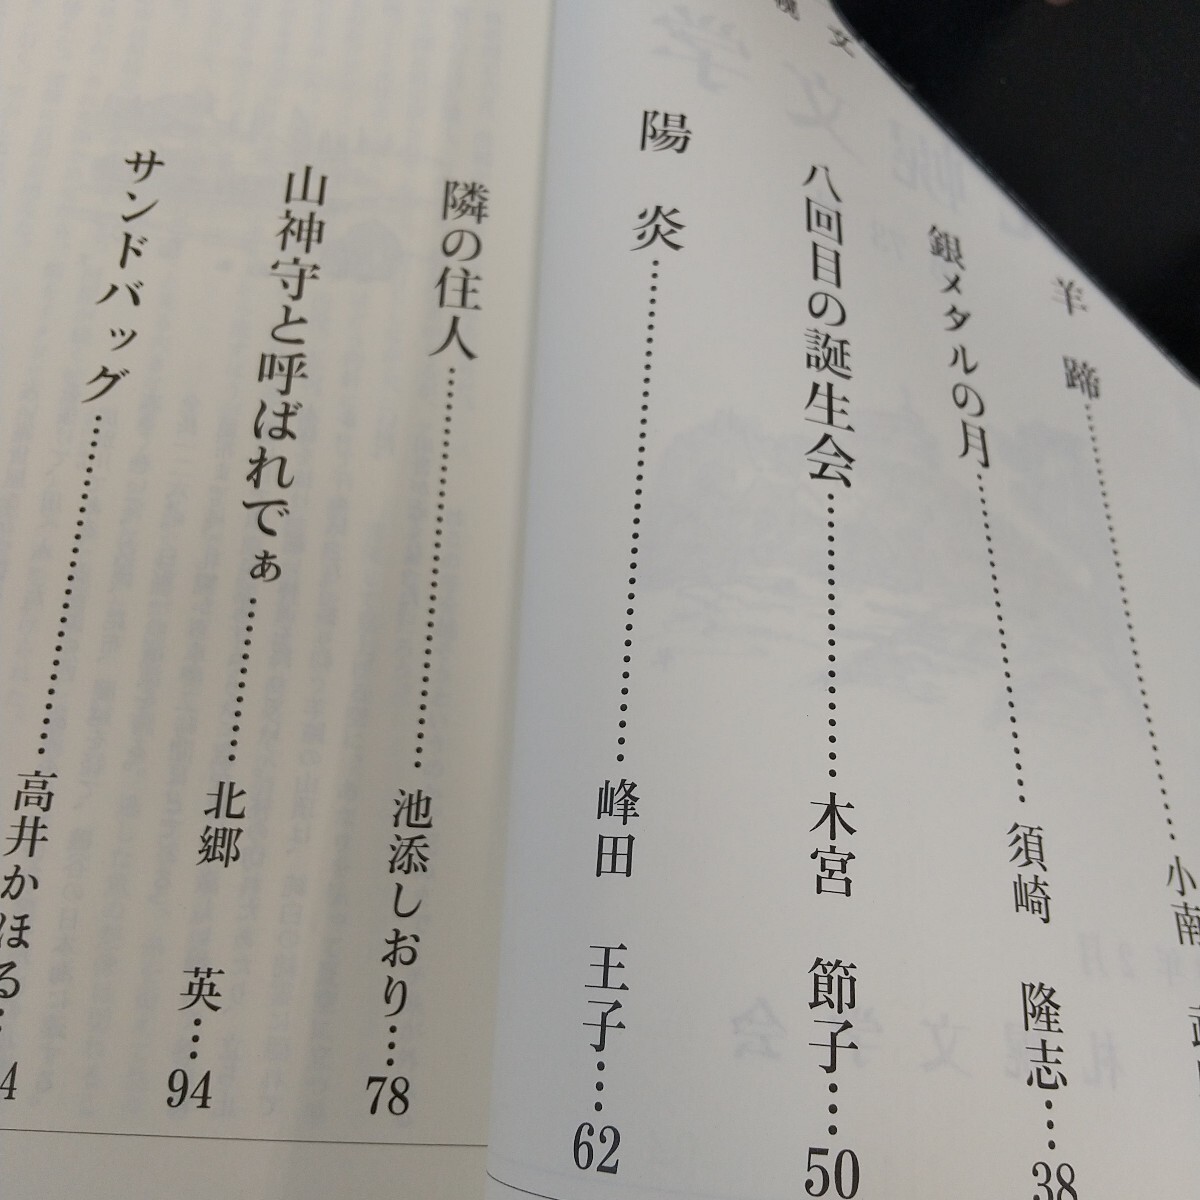 羊蹄……小南
銀メタルの月……須崎 隆志…38
八回目の誕生会……木宮 節子…50
陽炎……峰田 王子…62
隣の住人……池添しおり…78
山神守と呼ばれでぁ……北郷 英…94
サンドバッグ……高井かほる…